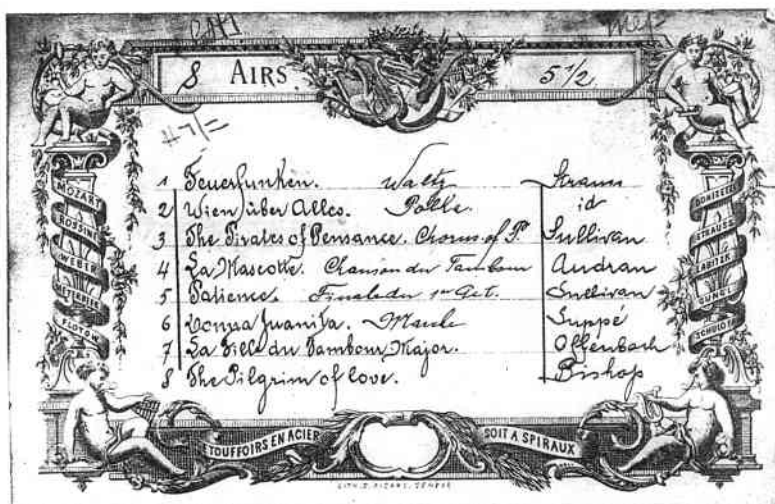 8 AIRS 5 1/2
1 Feuerfunken. Waltz Strauss
2 Wien über Alles. Polke. id
3 The Pirates of Pensance. Chorus of P. Sullivan
4 La Mascotte. Chanson du Tambour Audran
5 Patience. Finale du 1er Act. Sullivan
6 Donna Juanita. Suppé
7 La Fille du Tambour Major. Offenbach
8 The Pilgrim of love. Bishop
MOZART
ROSSINI
WEBER
MEYERBEER
FLOTOW
DONIZETTI
STRAUSS
LABITZK
GUNGL
ETOUFFOIRS EN ACIER
SOIT A SPIRAUX